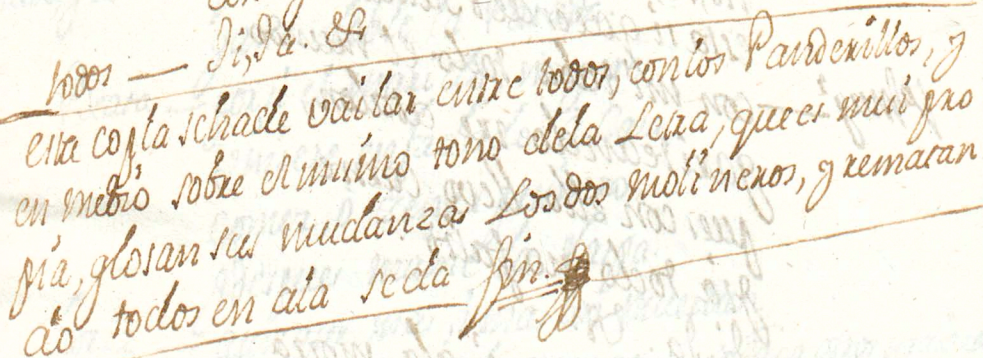 todos — Ji, Ja. &
este copla se ha de vailar entre todos, con los Panderillos, y
en medio sobre el mismo tono de la Letra, que es mui pro
pia, glosan sus mudanzas Los dos molineros, y rematan
do todos en ala se da fin.